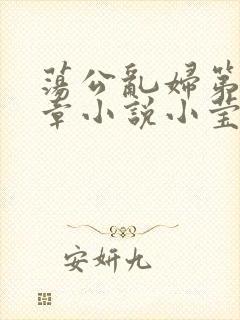 蕩公亂婦第
章小説小莹
安妍九